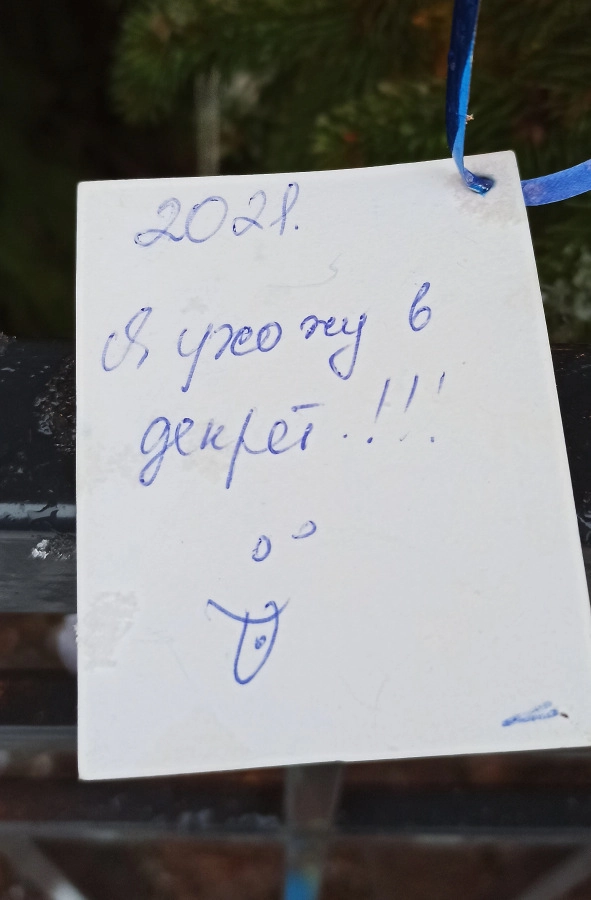 2021.
Я ухожу в
декрет.!!!